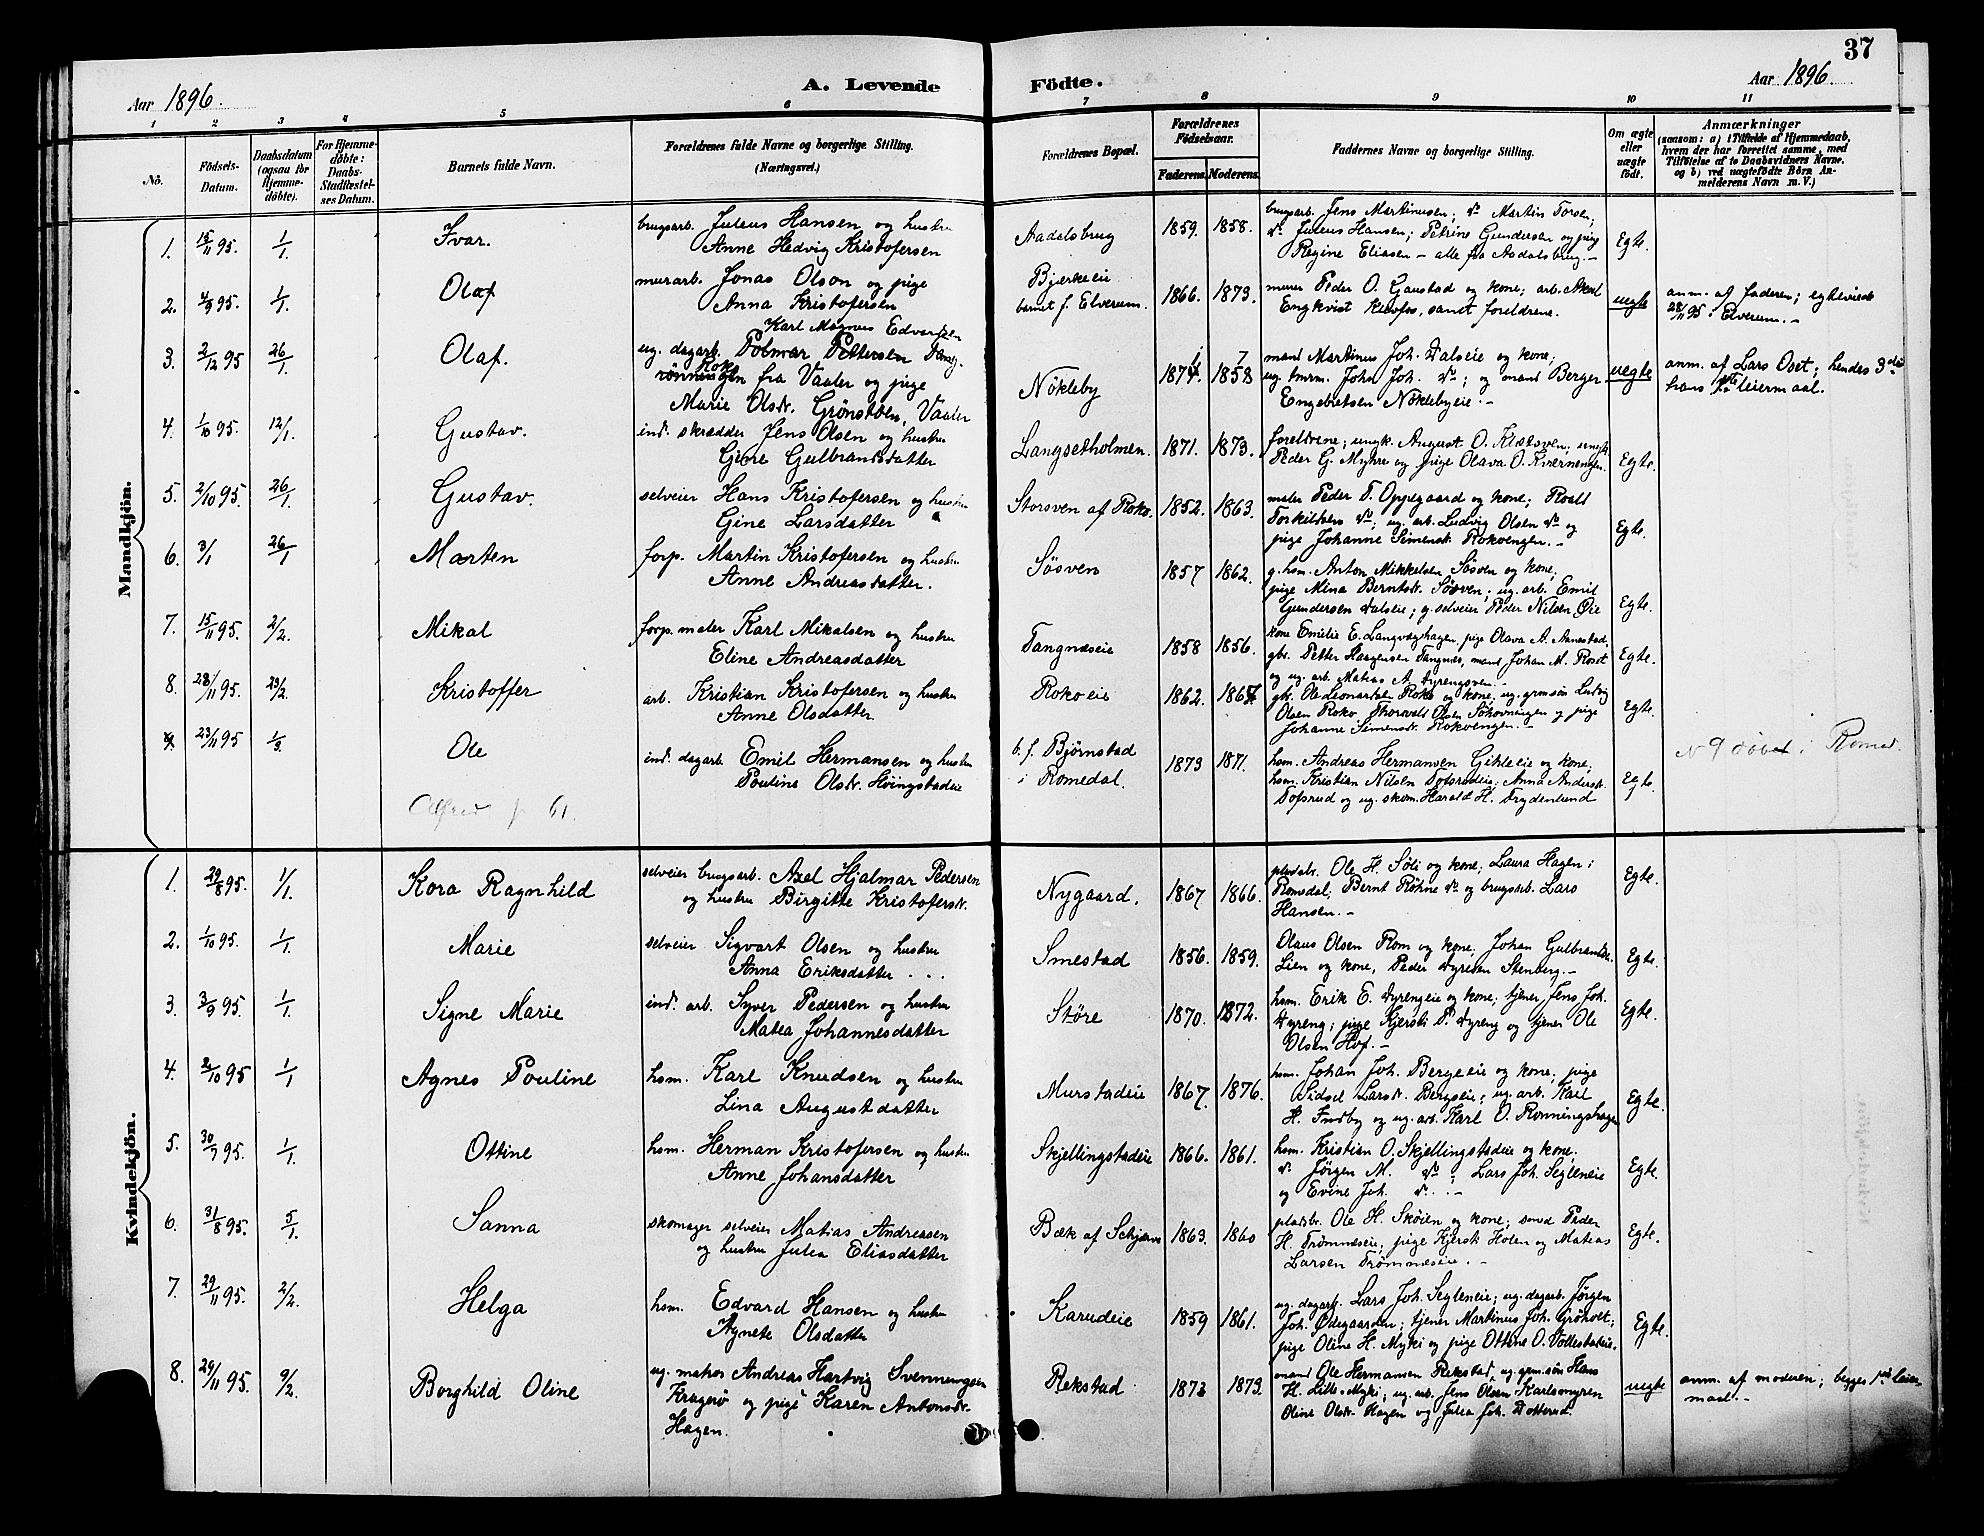 37
Aar 1896.
A. Levende
Födte.
Aar 1896.
1 2 3 4 5 6 7 8 9 10 11
No.
Födsels-Datum.
Daabsdatum (ogsaa for Hjemme-döbte).
For Hjemme-döbte: Daabs-Stadfæstel-ses Datum.
Barnets fulde Navn.
Forældrenes fulde Navne og borgerlige Stilling.
(Næringsvei.)
Forældrenes Bopæl.
Forældrenes Födselsaar.
Faderens. Moderens.
Faddernes Navne og borgerlige Stilling.
Om ægte eller uægte födt.
Anmærkninger
(saasom: a) i Tilfælde af Hjemmedaab,
hvem der har forrettet samme, med
Tilföielse af to Daabsvidners Navne.
og b) ved uægtefödte Börn An-
melderens Navn m. V.)
Mandkjön.
1. 15/11 95. 1/1. Ivar. brugsarb. Julius Hansen og hustru
Anne Hedvig Kristofersen
Aadalsbrug 1859. 1858.
brugsarb. Jens Martinusen; do Martin Torsen;
do Julius Hansen; Petrine Gundersen og pige
Regine Eliasen – alle fra Aadalsbrug. –
Egte.
2. 4/9 95. 1/1. Olaf murarb. Jonas Olson og pige
Anna Kristofersen
Bjerkeeie
barnet f. Elverum. 1866. 1873.
murer Peder O. Gaustad og kone; arb. Axel
Engkvist samt foreldrene.
uegte
anm. af faderen; egteviede
28/11 95 i Elverum. –
3. 2/12 95 26/1. Olaf. Karl Magnus Edvardsen
ug. dagarb. Polmar Pettersen
fra Vaaler og pige
Marie Olsdr. Grönstöen, Vaaler
Nökleby 1874. 1858
mand Martinus Joh. Dalseie og kone;
ug. tmrm. Johan Joh. do; og mand Berger
Engebretsen Nöklebyeie. –
uegte
anm. af Lars Oset; hendes 3die
hans leiermaal.
4. 1/10 95. 12/1. Gustav. ind. skrædder Jens Olsen og hustru
Gine Gulbrandsdatter
Langsetholmen. 1871. 1873.
foreldrene; ungk. August O.
Peder G. Myhre og pige Olava O. Kvernengen.
Egte.
5. 2/10 95. 26/1 Gustav. selveier Hans Kristofersen og hustru
Gine Larsdatter
Storsven af Roko. 1852. 1863.
maler Peder T. Oppegaard og kone; Roald
Torkildsen do; ug. arb. Ludvig Olsen do og
pige Johanne Simensdr. Rokvengen. –
Egte.
6. 3/1 26/1 Marten forp. Martin Kristofersen og hustru
Anne Andreasdatter.
Sösven 1857 1862.
g. hsm. Anton Mikkelsen Sösven og kone;
pige Mina Berntsdr. Sösven; ug. arb. Emil
Gundersen Dalseie; g. selveier Peder Nilsen Öie
Egte.
7. 15/11 95. 2/2. Mikal forp. maler Karl Mikalsen og hustru
Eline Andreasdatter
Tangnæseie 1858 1856.
kone Emilie E. Langvæghagen, pige Olava A. Aanestad,
gbr. Petter Haagensen Tangnæs, mand Johan M. Roset
og ug. arb. Matias A. Dyrengsven. –
Egte.
8. 28/11 95. 23/2. Kristoffer arb. Kristian Kristofersen og hustru
Anne Olsdatter.
Rokoeie 1862. 1867.
gbr. Ole Leonardsen Roko og kone; ug. grmsön Ludvig
Olsen Roko Thorvald Olsen og pige
Johanne Simensdr. Rokvengen. –
Egte.
23/11 95 1/3. Ole ind. dagarb. Emil Hermansen og hustru
Pouline Olsdr. Höingstadeie
b. f. Björnstad
i Romedal. 1873 1871.
hsm. Andreas Hermansen Gikleeie og kone;
hsm. Kristian Nilsen Tofsrudeie; Anna Andersdr.
Tofsrud og ug. skom. Harald H. Frydenlund
Egte.
N 9 döbt i Romed.
Alfred p 61.
Kvindekjön.
1. 29/8 95. 1/1. Kora Ragnhild selveier brugsarb. Axel Hjalmar Pedersen
og hustru Birgitte Kristofersdr.
Nygaard. 1867 1866.
pladsbr. Ole H. Söli og kone; Laura Hagen i
Romsdal, Bernt Röhne do og brugsarb. Lars
Hansen. –
Egte.
2. 1/10 95. 1/1. Marie selveier Sigvart Olsen og hustru
Anna Eriksdatter . . .
Smestad 1856. 1859.
Olaus Olsen Rom og kone, Johan Gulbrandsen
Lien og kone, Peder Dyresen Stenberg. –
Egte.
3. 3/9 95. 1/1. Signe Marie ind. arb. Syver Pedersen og hustru
Matea Johannesdatter
Störe 1870. 1872.
hsm. Erik E. Dyrengeie og kone; tjener Jens Joh.
Dyreng; pige Kjersti P. Dyreng og tjener Ole
Olsen Hof. –
Egte.
4. 2/10 95 1/1 Agnes Pouline hsm. Karl Knudsen og hustru
Lina Augustdatter
Murstadeie 1867. 1876.
hsm. Johan Joh. Bergeeie og kone, pige
Sidsel Larsdr. Bergseie; ug. arb. Karl
H. Findby og ug. arb. Karl O. Ronningshagen
Egte.
5. 30/7 95. 1/1. Ottine hsm. Herman Kristofersen og hustru
Anne Johansdatter
Skjellingstadeie 1866. 1861.
hsm. Kristian O. Skjellingstadeie og kone;
do. Jörgen M. do; Lars Joh. Segleneie
og Evine Joh. do. . . –
Egte.
6. 31/8 95. 5/1. Sanna skomager selveier Matias Andreasen
og hustru Julia Eliasdatter
Bæk af Schjærve 1863. 1860
pladsbr. Ole H. Sköien og kone; smed Peder
H. Trömnæseie; pige Kjersti Holen og Matias
Larsen Trömnæseie. –
Egte.
7. 29/11 95. 2/2. Helga hsm. Edvard Hansen og hustru
Agnete Olsdatter
Karudeie 1859 1861.
ug. dagarb. Lars Joh. Segleneie; ug. dagarb. Jörgen
Joh. Ödegaarden; tjener Martinus Joh. Gröholt;
pige Oline H. Myki og pige Ottine O. Vollestadeie.
Egte.
8. 29/11 95. 9/2. Borghild Oline ug. matros Andreas Hartvig Svenningsen
Kragerö og pige Karen Antonsdr.
Hagen.
Rekstad 1873 1873.
mand Ole Hermansen Rekstad, ug. grm. sön Hans
H. Lille-Myki; ug. arb. Jens Olsen Karlsmyren
Oline Olsdr. Hagen og Julia Joh. Dotterud.
uegte
anm. af moderen; begges 1ste leier
maal. –